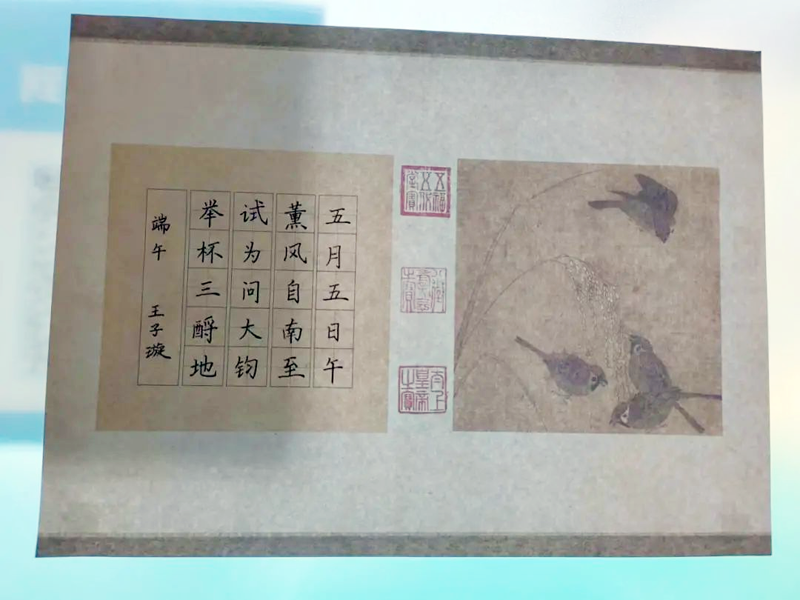 五月五日午
薰风自南至
试为问大钧
举杯三酹地
端午 王子璇